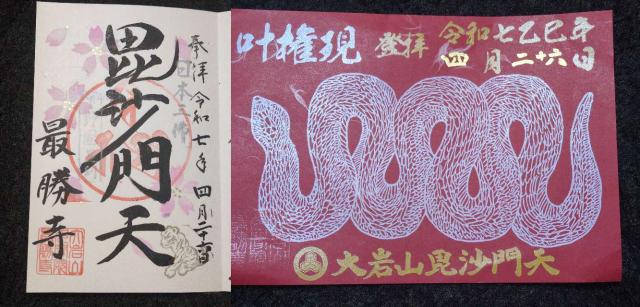 奉拝 令和七年 四月二十六日
日本三体
毘沙門天
最勝寺
叶権現 登拝 令和七乙巳年
四月二十六日
大岩山毘沙門天